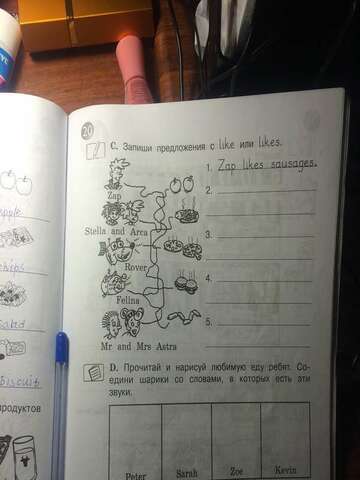 20
C. Запиши предложения с like или likes.
1. Zap likes sausages.
Zap
2.
Stella and Arca
3.
Rover
4.
Felina
5.
Mr and Mrs Astra
D. Прочитай и нарисуй любимую еду ребят. Со-
едини шарики со словами, в которых есть эти
звуки.
Peter Sarah Zoe Kevin
biscuit
продуктов